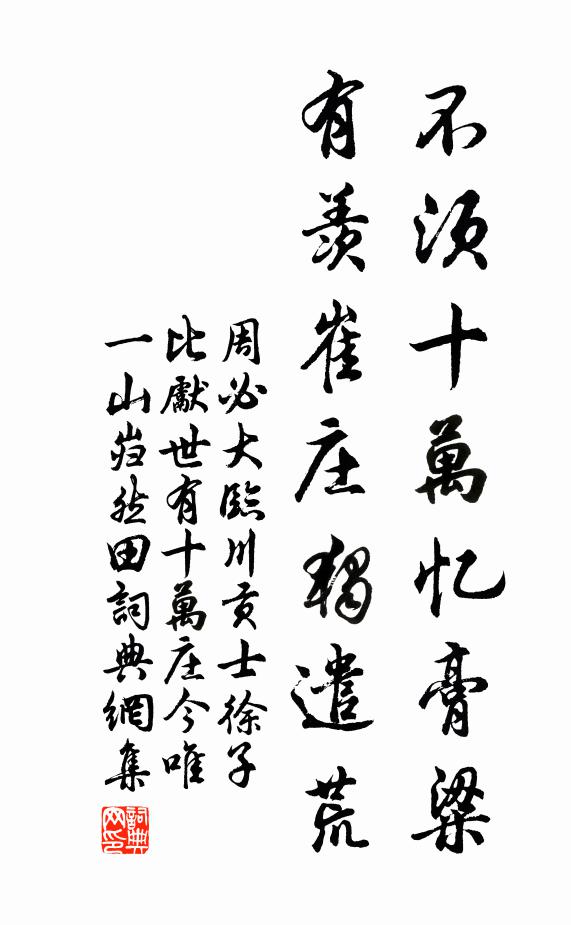 不须十萬忆膏粱
有羡崔庄獨遣荒
周必大臨川贡士徐子
比獻世有十萬庄今唯
一山岿然田詞典網集
詞典网印